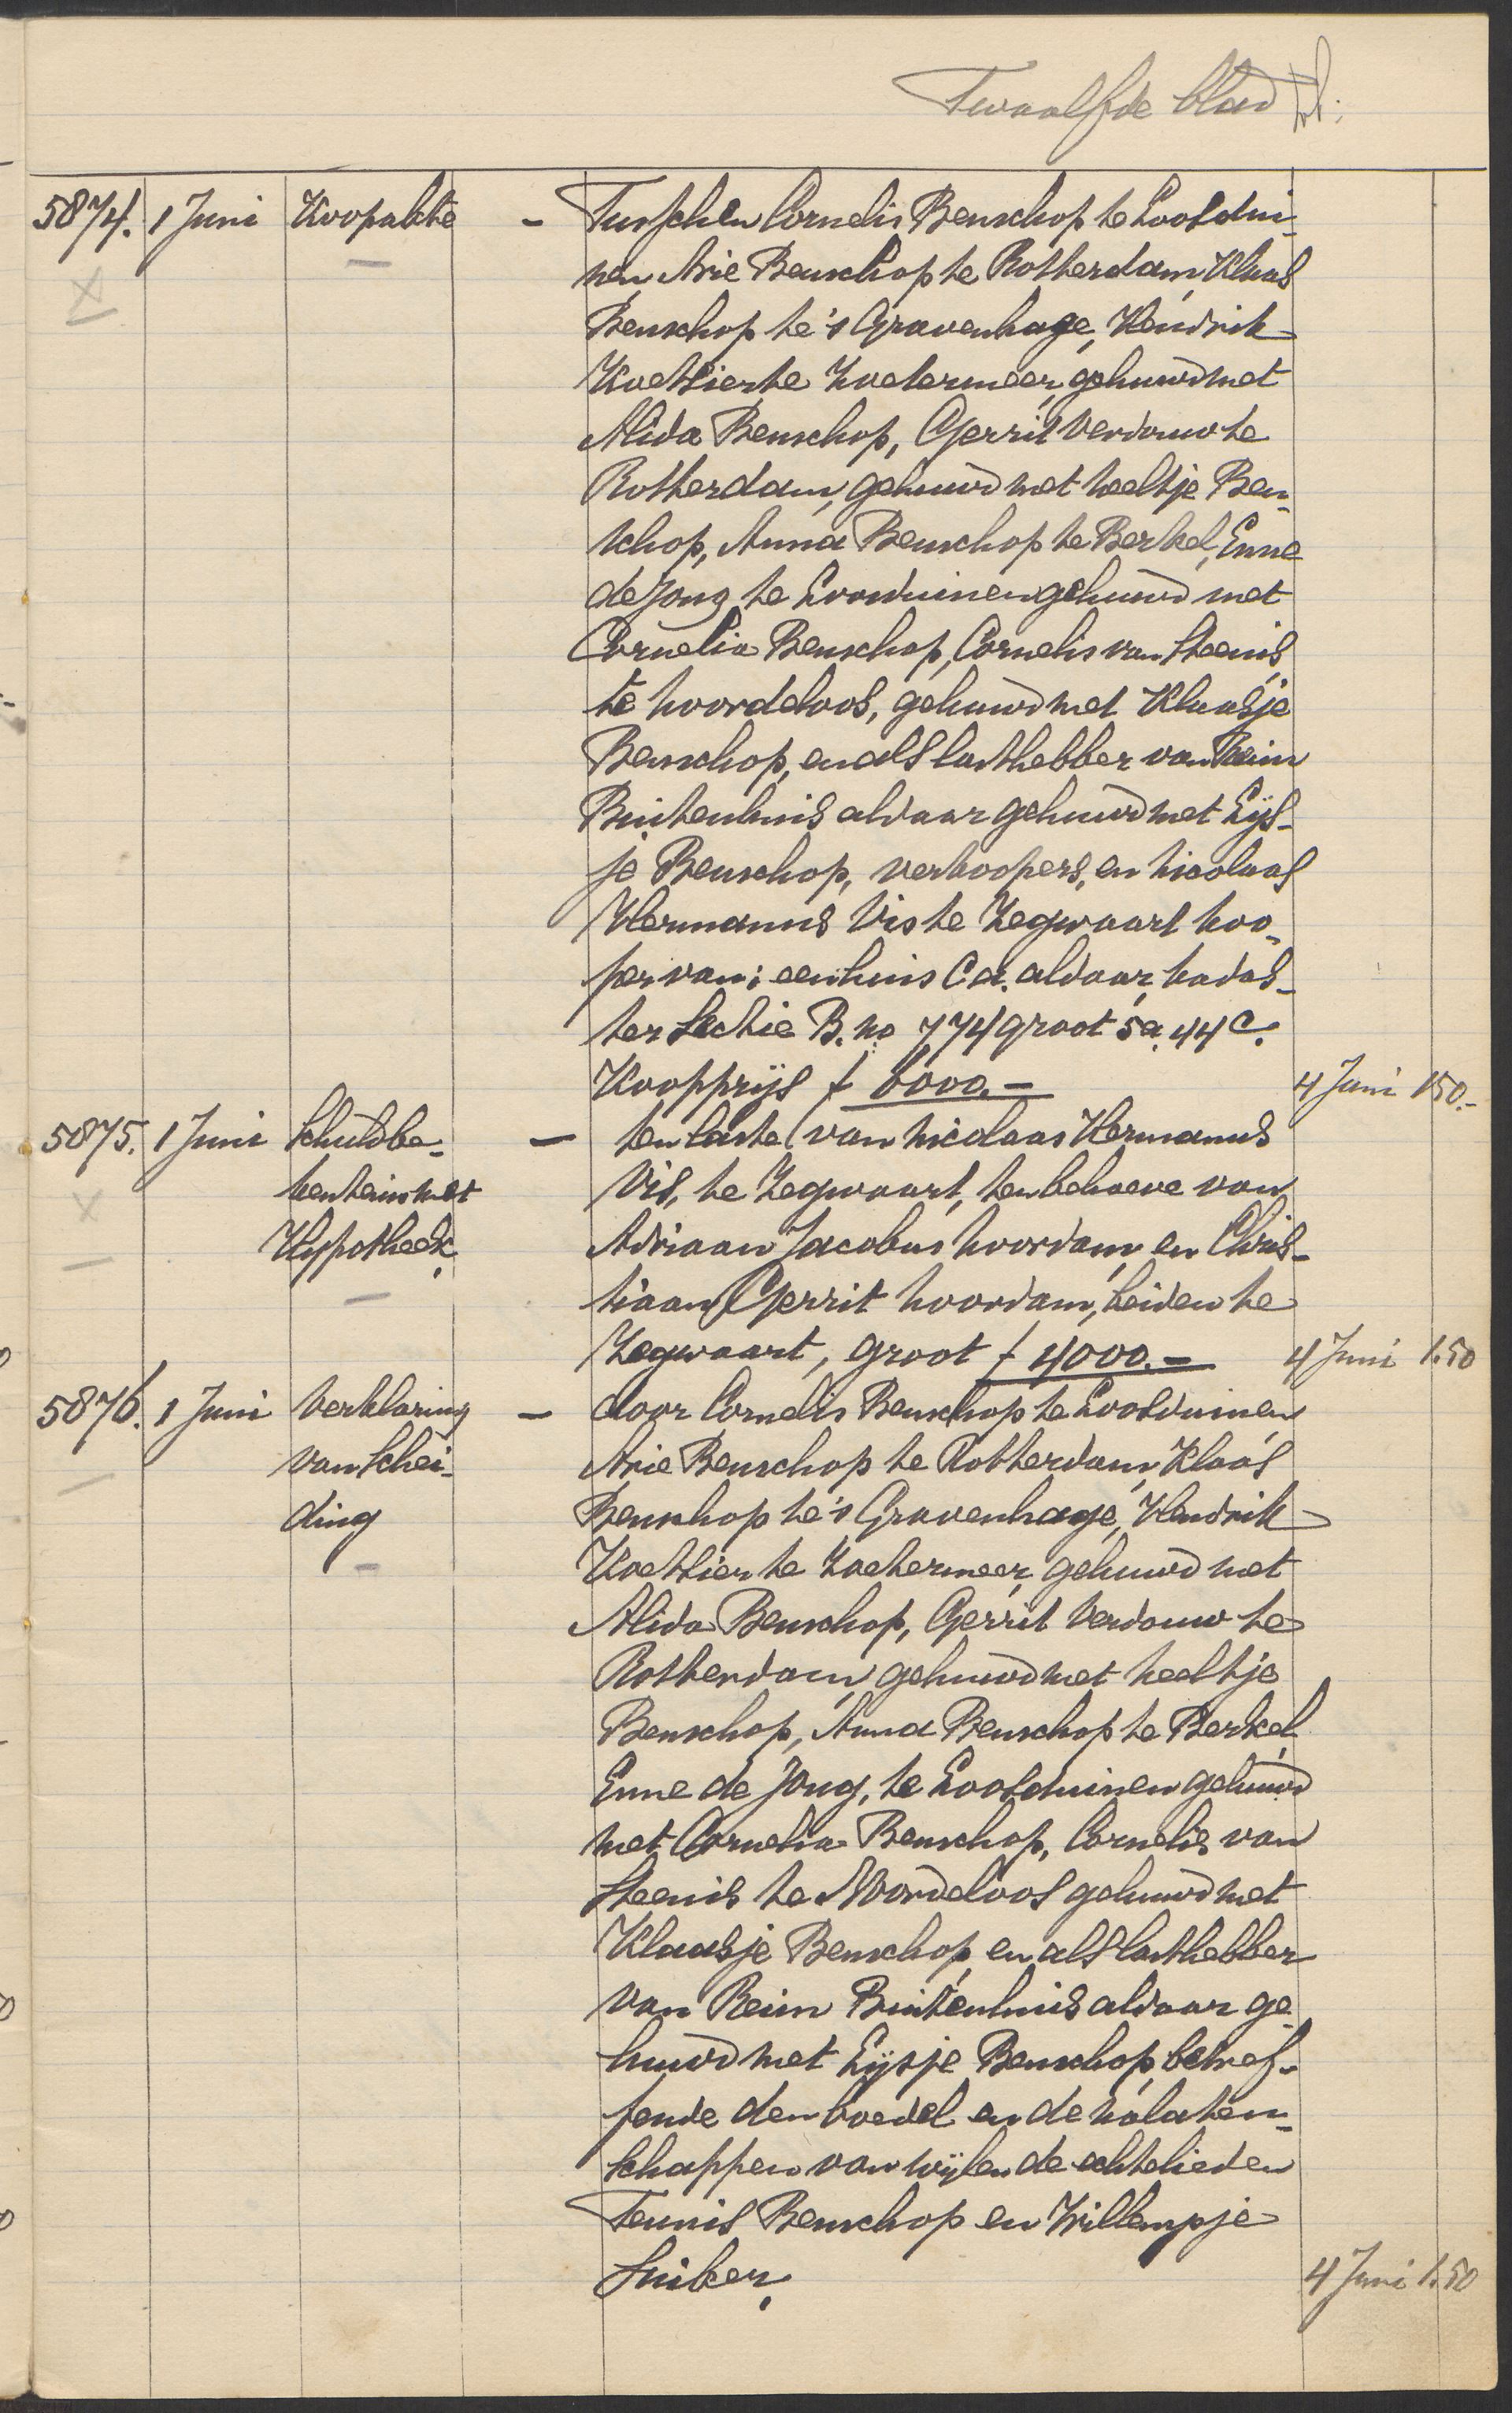 Twaalfde blad
5874. 1 Juni Koopakte - Tusschen Cornelis Benschop te Loosdui-
nen, Arie Benschop te Rotterdam, Klaas
Benschop te 's Gravenhage, Hendrik
Koetsier te Zoetermeer, gehuwd met
Alida Benschop, Gerrit Verdouw te
Rotterdam, gehuwd met Neeltje Ben-
schop, Anna Benschop te Berkel, Enne
de Jong te Loosduinen gehuwd met
Cornelia Benschop, Cornelis van Steenis
te Noordeloos, gehuwd met Klaasje
Benschop, en als lasthebber van Reim
Buitenhuis aldaar gehuwd met Lijs-
je Benschop, verkoopers, en Nicolaas
Hermanus Vis te Zegwaart koo-
per van: een huis C.a. aldaar, kadas-
ter Sectie B. no 774 groot 5a. 44 c.
Koopprijs f 6000.- 4 Juni 150.-
5875. 1 Juni Schuldbe- - ten laste van Nicolaas Hermanus
kentenis met Vis, te Zegwaart, ten behoeve van
Hypotheek. Adriaan Jacobus Noordam, en Chris-
tiaan Gerrit Noordam, beiden te
Zegwaart, groot f 4000.- 4 Juni 1.50
5876. 1 Juni Verklaring - door Cornelis Benschop te Loosduinen
van Schei- Arie Benschop te Rotterdam, Klaas
ding Benschop te 's Gravenhage, Hendrik
Koetsier te Zoetermeer, gehuwd met
Alida Benschop, Gerrit Verdouw te
Rotterdam, gehuwd met Neeltje
Benschop, Anna Benschop te Berkel,
Enne de Jong, te Loosduinen gehuwd
met Cornelia Benschop, Cornelis van
Steenis te Noordeloos gehuwd met
Klaasje Benschop, en als lasthebber
van Reim Buitenhuis aldaar ge-
huwd met Lijsje Benschop, betref-
fende den boedel en de nalaten-
schappen van wijlen de echtelieden
Teunis Benschop en Willempje
Suiker, 4 Juni 1.50